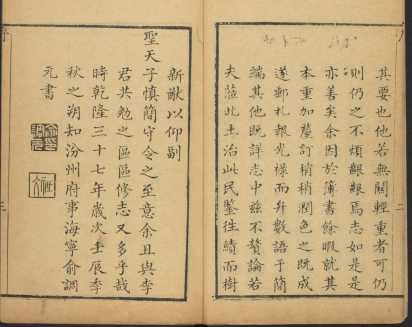 其要也他若無關輕重者可仍
則仍之不煩覼覼焉志如是是
亦善矣余因於薄書餘暇就其
本重加釐訂稍稍潤色之既成
遂郵札報光祿而弁數語于簡
端其他既詳志中茲不贅論若
夫蒞此土治此民鑒徃績而樹
新猷以仰副
聖天子慎簡守令之至意余且與李
君共勉之區區修志又多乎哉
時乾隆三十七年歲次壬辰季
秋之朔知汾州府事海寧俞調
元書
二
三
序